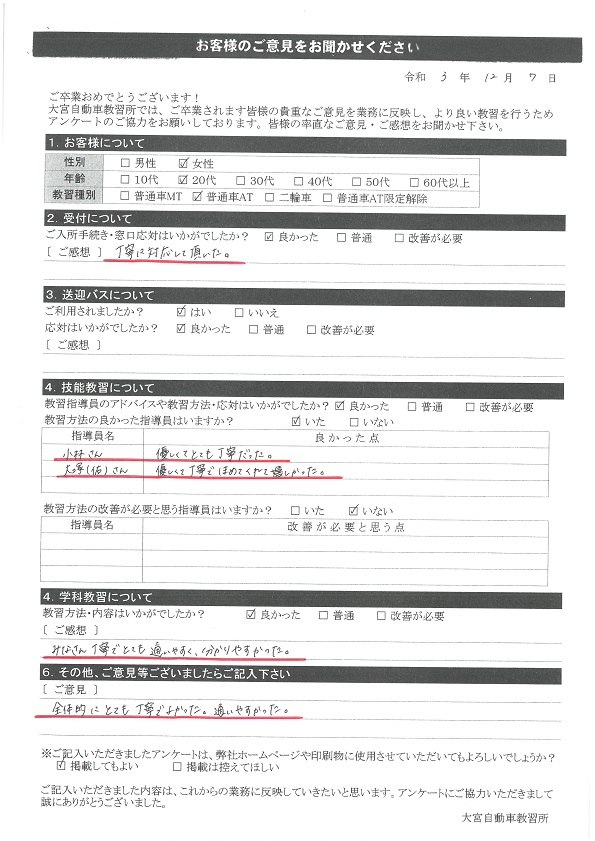 お客様のご意見をお聞かせください
令和 3 年 12 月 7 日
ご卒業おめでとうございます！
大宮自動車教習所では、ご卒業されます皆様の貴重なご意見を業務に反映し、より良い教習を行うため
アンケートのご協力をお願いしております。皆様の率直なご意見・ご感想をお聞かせ下さい。
1. お客様について
性別 □ 男性 ☑ 女性
年齢 □ 10代 ☑ 20代 □ 30代 □ 40代 □ 50代 □ 60代以上
教習種別 □ 普通車MT ☑ 普通車AT □ 二輪車 □ 普通車AT限定解除
2. 受付について
ご入所手続き・窓口応対はいかがでしたか？ ☑ 良かった □ 普通 □ 改善が必要
[ ご感想 ] 丁寧に対応して頂いた。
3. 送迎バスについて
ご利用されましたか？ ☑ はい □ いいえ
応対はいかがでしたか？ ☑ 良かった □ 普通 □ 改善が必要
[ ご感想 ]
4. 技能教習について
教習指導員のアドバイスや教習方法・応対はいかがでしたか？ ☑ 良かった □ 普通 □ 改善が必要
教習方法の良かった指導員はいますか？ ☑ いた □ いない
指導員名 良かった点
小林さん 優しくてとても丁寧だった。
大澤(佑)さん 優しくて丁寧でほめてくれて嬉しかった。
教習方法の改善が必要と思う指導員はいますか？ □ いた ☑ いない
指導員名 改善が必要と思う点
4. 学科教習について
教習方法・内容はいかがでしたか？ ☑ 良かった □ 普通 □ 改善が必要
[ ご感想 ]
みなさん丁寧でとても通いやすく、分かりやすかった。
6. その他、ご意見等ございましたらご記入下さい
[ ご意見 ]
全体的にとても丁寧でよかった。通いやすかった。
※ご記入いただきましたアンケートは、弊社ホームページや印刷物に使用させていただいてもよろしいでしょうか？
☑ 掲載してもよい □ 掲載は控えてほしい
ご記入いただきました内容は、これからの業務に反映していきたいと思います。アンケートにご協力いただきまして
誠にありがとうございました。
大宮自動車教習所